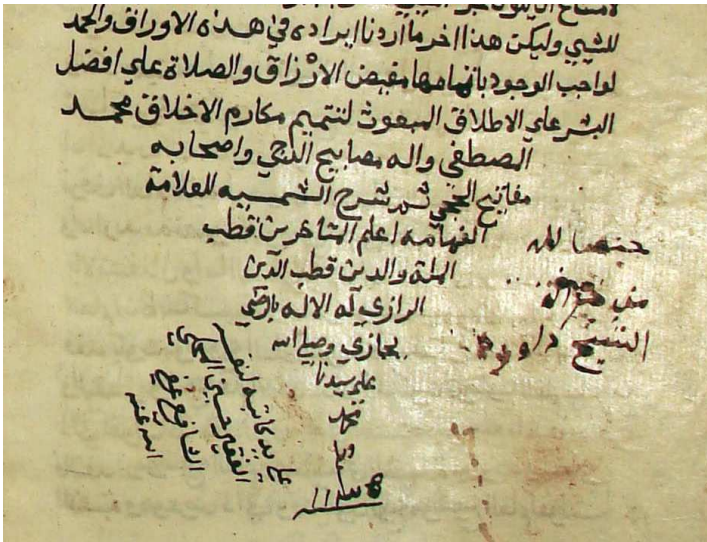 للشيى وليكن هذا اخر ما اردنا ايراده في هذه الاوراق والحمد
لواجب الوجود بانهامها مفيض الارزاق والصلاة علي افضل
البشر علي الاطلاق المبعوث لتتميم مكارم الاخلاق محمد
المصطفى واله مصابيح الدجي واصحابه
مفاتيح الحجي تمت شرح الشمسيه للعلامة
الفهامة اعلم المتاخرين قطب
الملة والدين قطب الدين
الرازي
يجازي وصلي الله
علي سيدنا
محمد
علي يد كاتبه لنفسه
الفقير حسين
الشافعي عفي
الله عنه
الشيخ داود